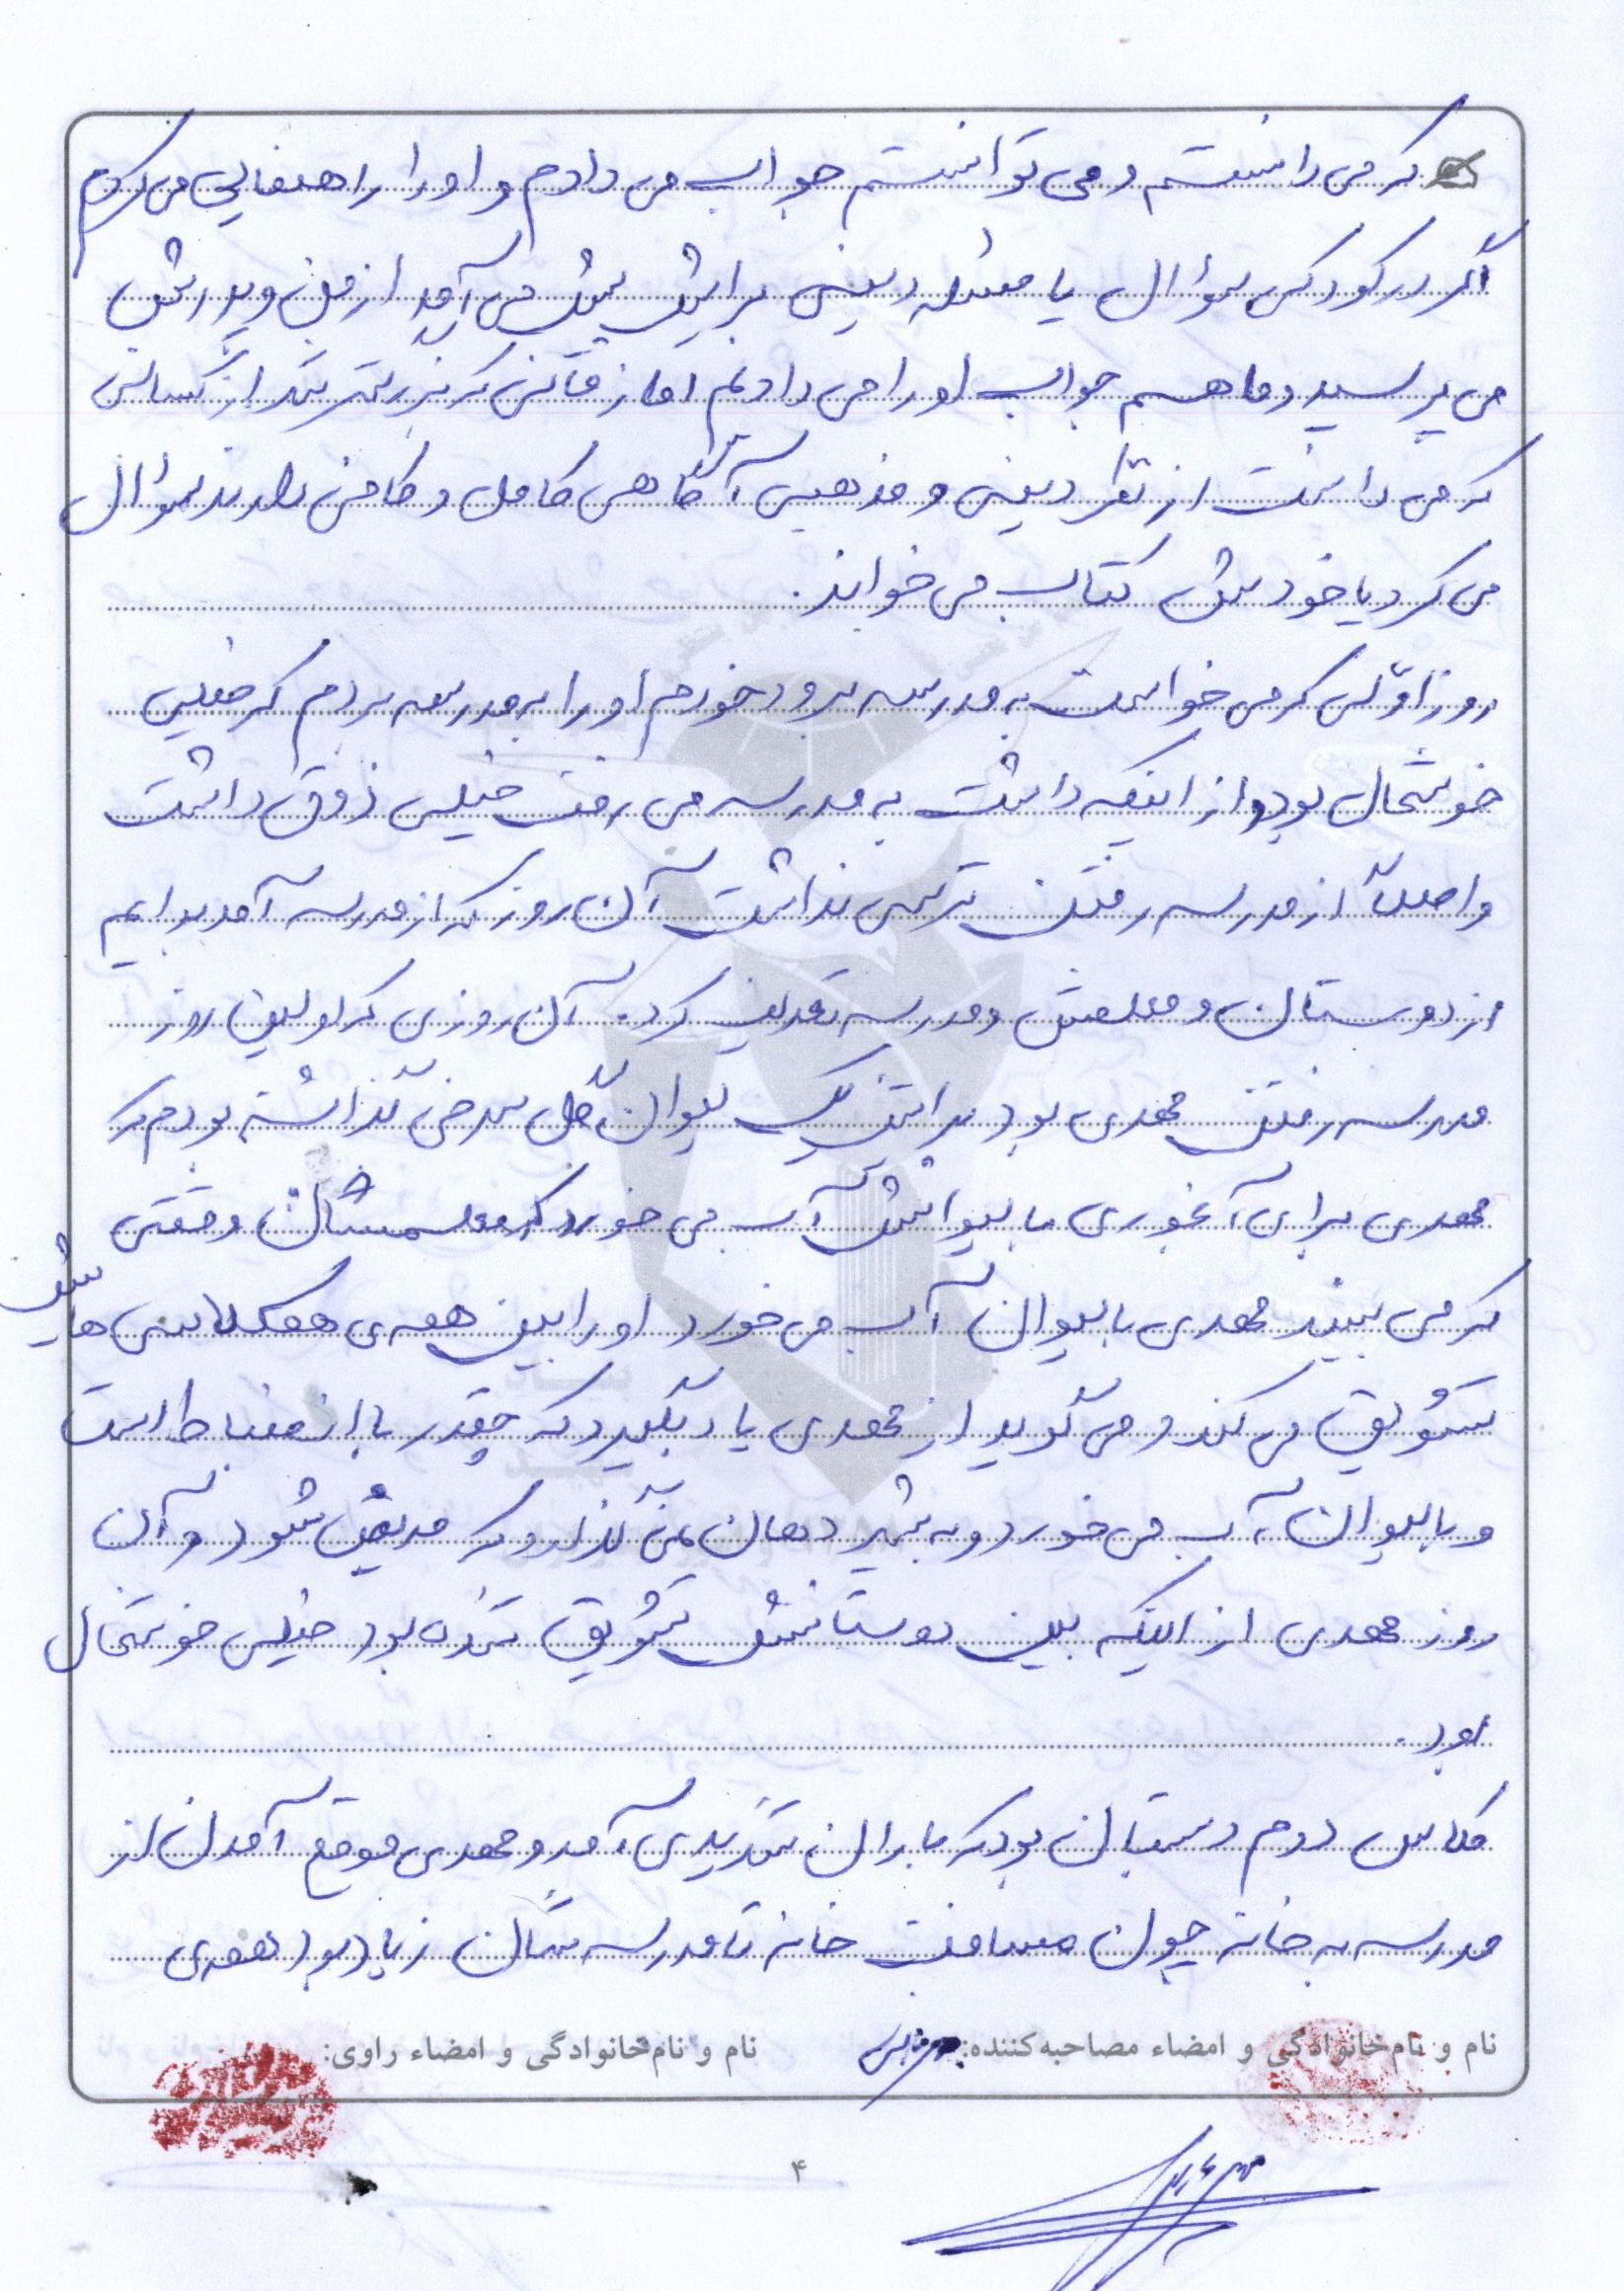 که می دانستم و می توانستم جواب می دادم و او را راهنمایی می کردم
اگر در کودکی سؤال یا مسئله دینی برایش پیش می آمد از من و پدرش
می پرسید و ما هم جواب او را می دادیم اما زمانی که بزرگتر شد از کسانی
که می دانست از نظر دینی و مذهبی آگاهی کامل و کافی دارند سؤال
می کرد یا خودش کتاب می خواند.
روز اوّلی که می خواست به مدرسه برود خودم او را به مدرسه بردم که خیلی
خوشحال بود و از اینکه داشت به مدرسه می رفت خیلی ذوق داشت
و اصلاً از مدرسه رفتن ترسی نداشت آن روز که از مدرسه آمد برایم
از دوستان و معلمش و مدرسه تعریف کرد. آن روزی که اولین روز
مدرسه رفتن مهدی بود برایش یک لیوان گل سرخی گذاشته بودم که
مهدی برای آبخوری با لیوانش آب می خورد که معلمشان وقتی
که می بیند مهدی با لیوان آب می خورد او را بین همه ی همکلاسی هایش
تشویق می کند و می گوید از مهدی یاد بگیرید که چقدر با انضباط است
و با لیوان آب می خورد و به شیر دهان نمی گذارد که مریض شود و آن
روز مهدی از اینکه بین دوستانش تشویق شده بود خیلی خوشحال
بود.
کلاس دوم دبستان بود که باران شدیدی آمد و مهدی موقع آمدن از
مدرسه به خانه چون مسافت خانه تا مدرسه شان زیاد بود همه ی
نام و نام خانوادگی و امضاء مصاحبه کننده: نام و نام خانوادگی و امضاء راوی:
۴